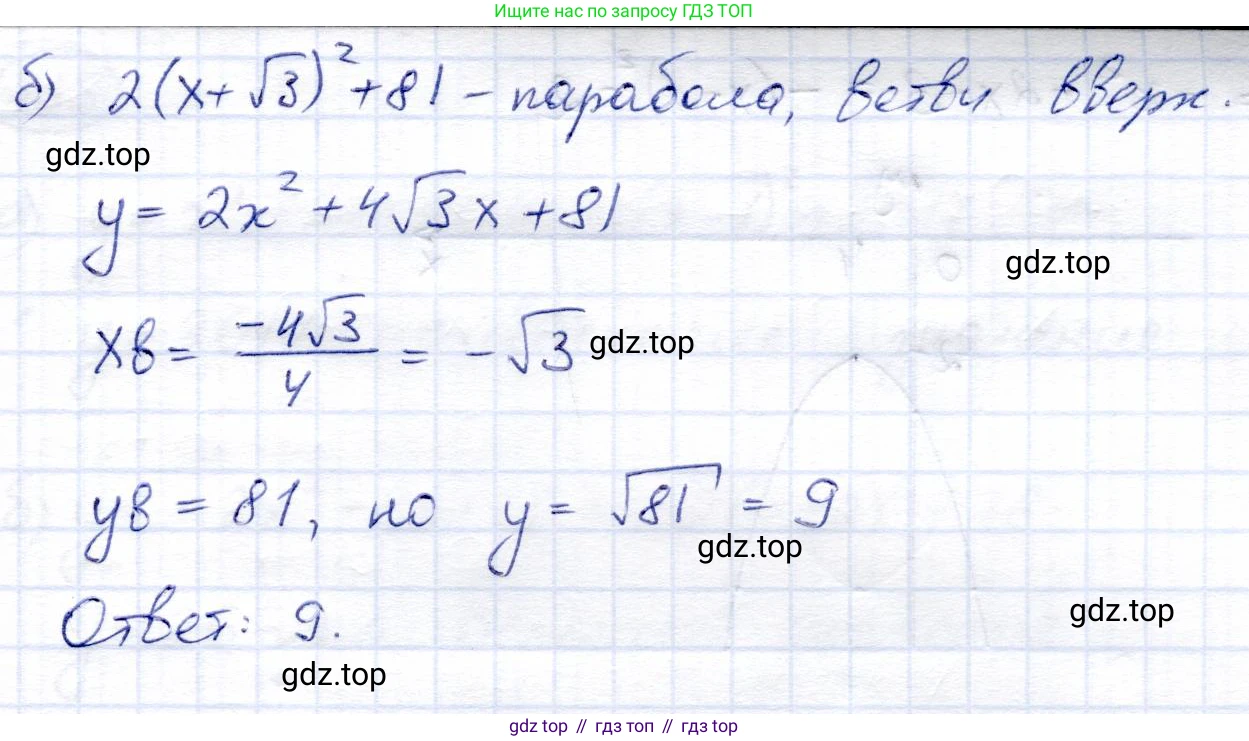 Ищите нас по запросу ГДЗ ТОП
б) 2(x+√3)²+81 - парабола, ветви вверх.
gdz.top
y = 2x² + 4√3x + 81
gdz.top
xв = -4√3/4 = -√3 gdz.top
yв = 81, но y = √81 = 9
gdz.top
Ответ: 9.
gdz.top
gdz.top
gdz top // гдз топ // гдз top